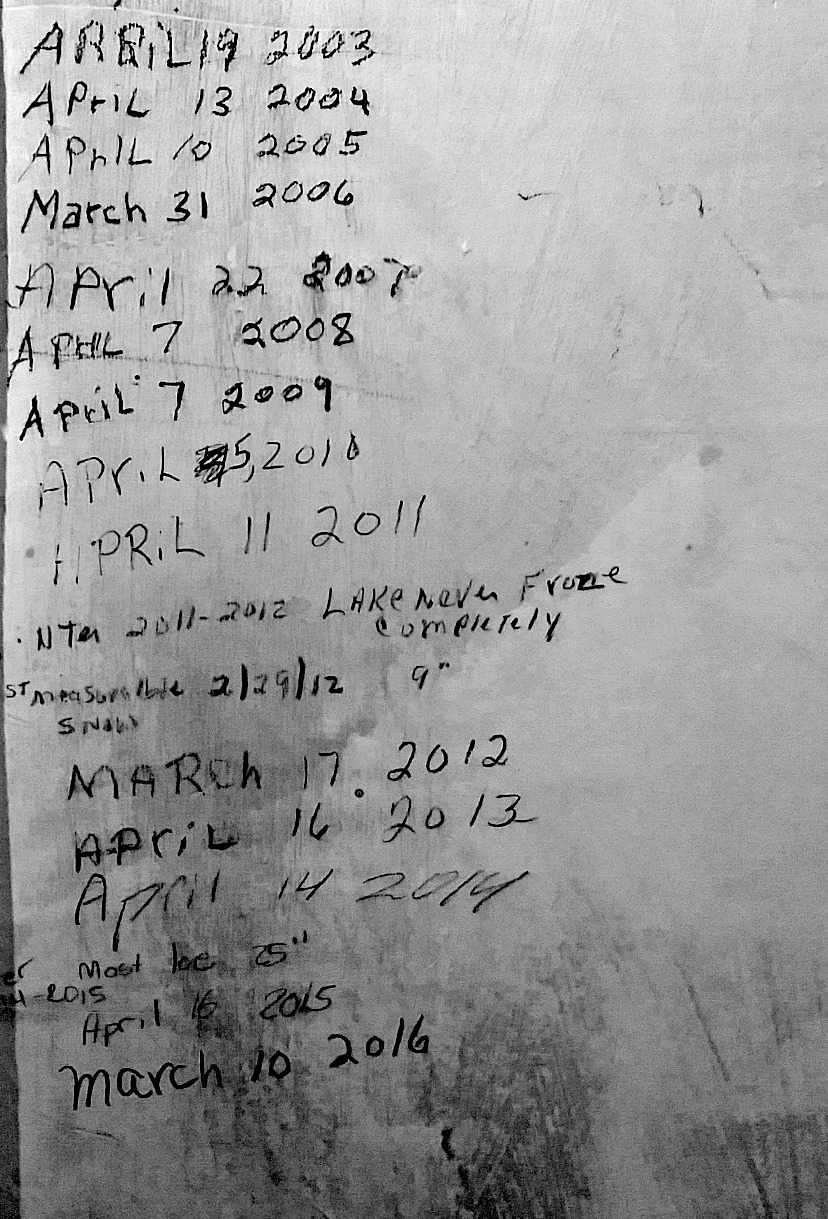 APRiL 19 2003
APriL 13 2004
APriL 10 2005
March 31 2006
APril 22 2007
APriL 7 2008
APriL 7 2009
APriL 5, 2010
APRiL 11 2011
NTer 2011-2012 LAKe Never Froze
completely
ST measurable 2/29/12 9"
SNow
MARch 17. 2012
APriL 16 2013
April 14 2014
er Most Ice 25"
4-2015
April 16 2015
march 10 2016